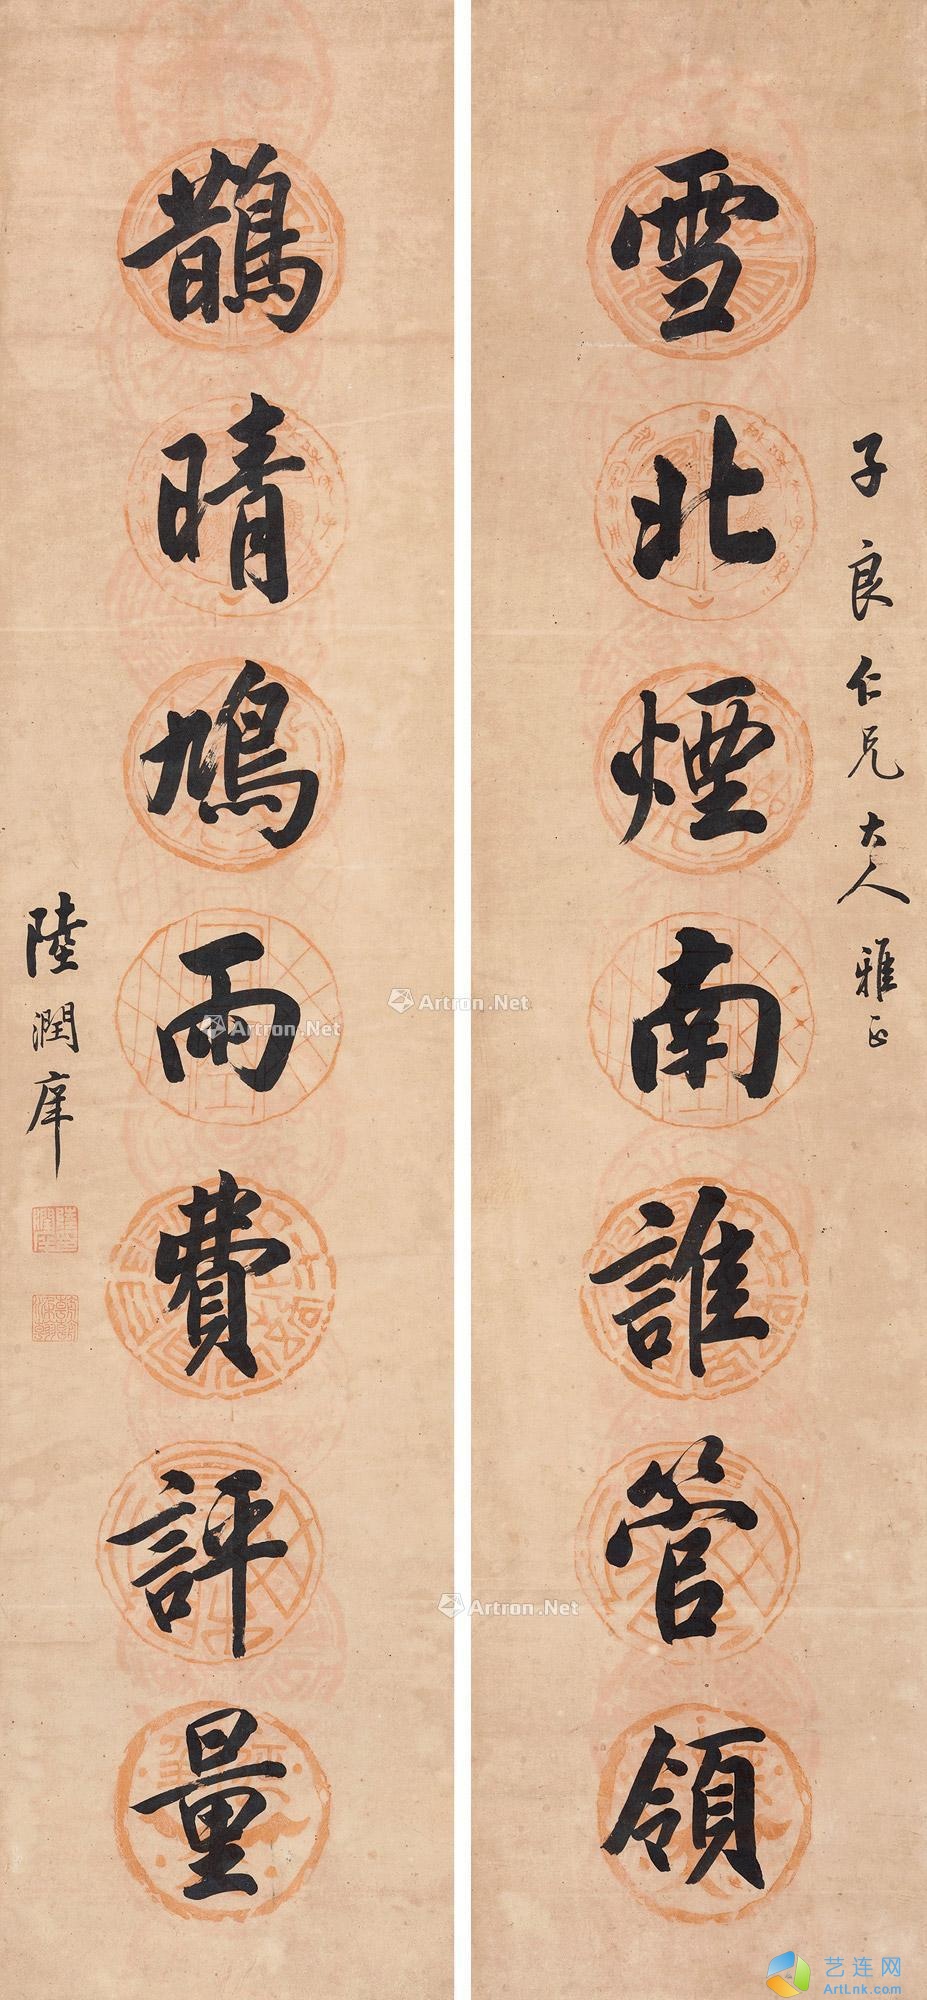 子良仁兄大人雅正
雪北煙南誰管領
鵲晴鳩雨費評量
陸潤庠
Artron.Net
Artron.Net
Artron.Net
艺连网
ArtLnk.com